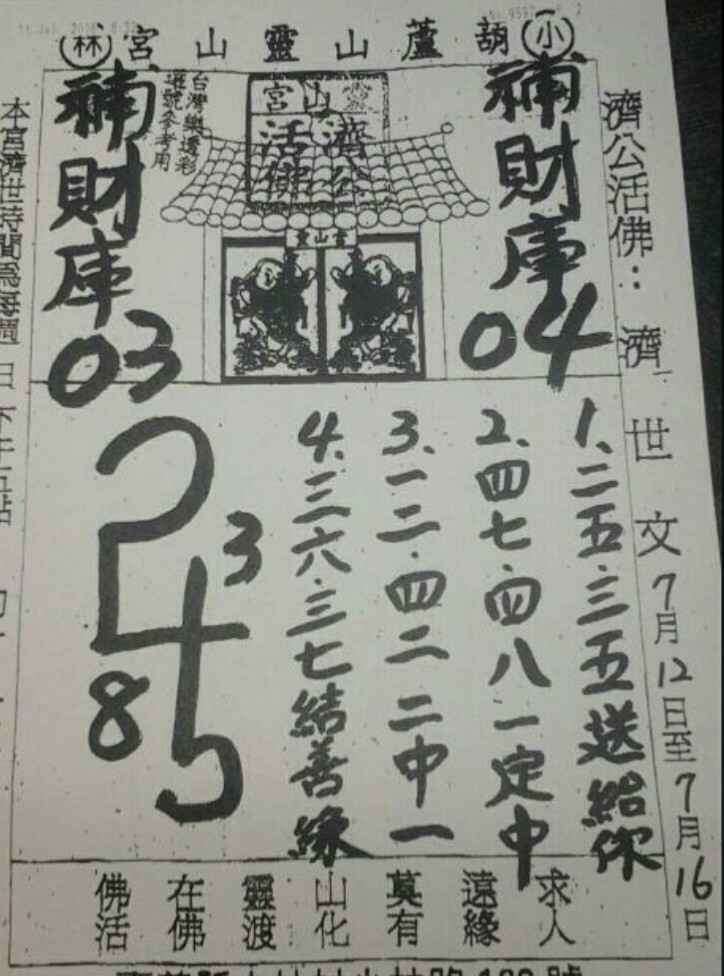 ㊑林 宮山靈山蘆葫 小
濟公活佛：濟世文 7月12日至7月16日
補財庫 04
台灣樂透彩
選號參考用
山宮
濟公
活佛
靈山宮
補財庫 03
1、二五.三五送給你
2、四七.四八一定中
3、一二.四二二中一
4、三六.三七結善緣
2 4 5
3
8
求人
遠緣
莫有
山化
靈渡
在佛
佛活
本宮濟世時間為每週日下午五點